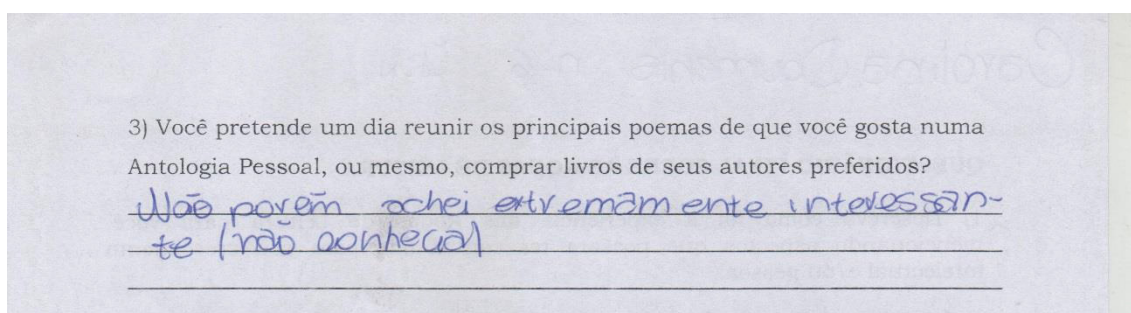 3) Você pretende um dia reunir os principais poemas de que você gosta numa
Antologia Pessoal, ou mesmo, comprar livros de seus autores preferidos?
Não porém achei extremamente interessan-
te (não conhecia)